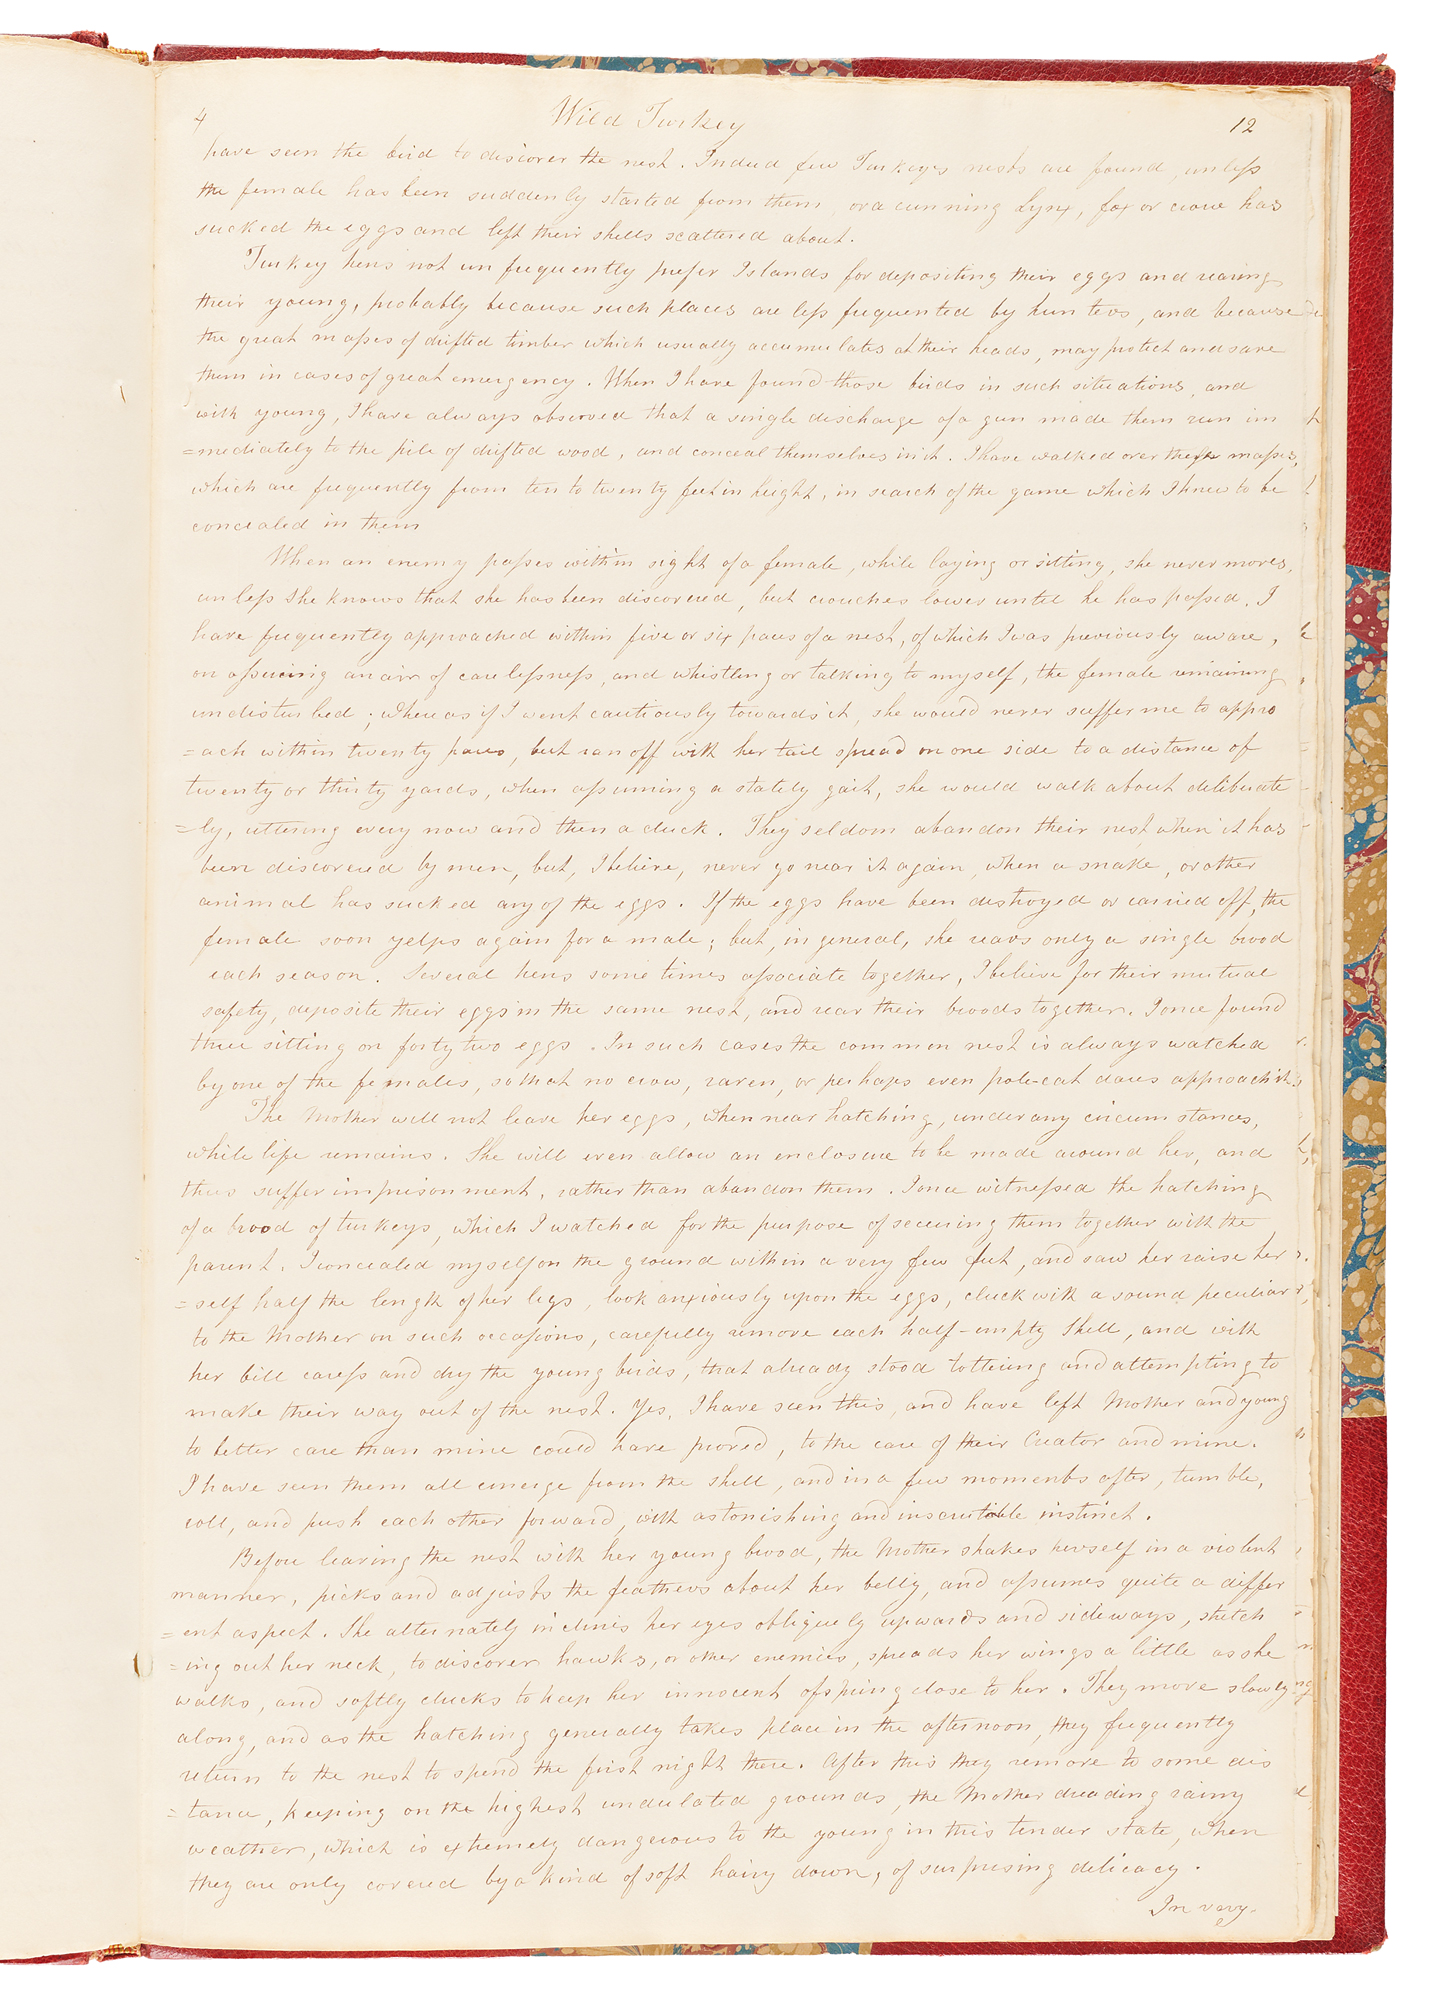 4 Wild Turkey 12
have seen the bird to discover the nest. Indeed few Turkey's nests are found, unless
the female has been suddenly started from them, or a cunning Lynx, fox or crow has
sucked the eggs and left their shells scattered about.
Turkey hens not unfrequently prefer Islands for depositing their eggs and rearing
their young, probably because such places are less frequented by hunters, and because
the great masses of drifted timber which usually accumulates at their heads, may protect and save
them in cases of great emergency. When I have found those birds in such situations, and
with young, I have always observed that a single discharge of a gun made them run im
=mediately to the pile of drifted wood, and conceal themselves in it. I have walked over these masses,
which are frequently from ten to twenty feet in height, in search of the game which I knew to be
concealed in them
When an enemy passes within sight of a female, while laying or sitting, she never moves,
unless she knows that she has been discovered, but crouches lower until he has passed. I
have frequently approached within five or six paces of a nest, of which I was previously aware,
on assuming an air of carelessness, and whistling or talking to myself, the female remaining
undisturbed; whereas if I went cautiously towards it, she would never suffer me to appro
=ach within twenty paces, but ran off with her tail spread on one side to a distance of
twenty or thirty yards, when assuming a stately gait, she would walk about deliberate
=ly, uttering every now and then a cluck. They seldom abandon their nest, when it has
been discovered by men, but, I believe, never go near it again, when a snake, or other
animal has sucked any of the eggs. If the eggs have been destroyed or carried off, the
female soon yelps again for a male; but, in general, she rears only a single brood
each season. Several hens sometimes associate together, I believe for their mutual
safety, deposite their eggs in the same nest, and rear their broods together. I once found
three sitting on forty two eggs. In such cases the common nest is always watched
by one of the females, so that no crow, raven, or perhaps even pole-cat dares approach it.
The Mother will not leave her eggs, when near hatching, under any circumstances,
while life remains. She will even allow an enclosure to be made around her, and
thus suffer imprisonment, rather than abandon them. I once witnessed the hatching
of a brood of turkeys, which I watched for the purpose of securing them together with the
parent. I concealed myself on the ground within a very few feet, and saw her raise her
=self half the length of her legs, look anxiously upon the eggs, cluck with a sound peculiar
to the Mother on such occasions, carefully remove each half-empty shell, and with
her bill caress and dry the young birds, that already stood tottering and attempting to
make their way out of the nest. Yes, I have seen this, and have left Mother and young
to better care than mine could have proved, to the care of their Creator and mine.
I have seen them all emerge from the shell, and in a few moments after, tumble,
roll, and push each other forward, with astonishing and inscrutable instinct.
Before leaving the nest with her young brood, the Mother shakes herself in a violent
manner, picks and adjusts the feathers about her belly, and assumes quite a differ
=ent aspect. She alternately inclines her eyes obliquely upwards and sideways, stretch
=ing out her neck, to discover hawks, or other enemies, spreads her wings a little as she
walks, and softly clucks to keep her innocent ofspring close to her. They move slowly
along, and as the hatching generally takes place in the afternoon, they frequently
return to the nest to spend the first night there. After this they remove to some dis
=tance, keeping on the highest undulated grounds, the Mother dreading rainy
weather, which is extremely dangerous to the young in this tender state, when
they are only covered by a kind of soft hairy down, of surprising delicacy.
In very